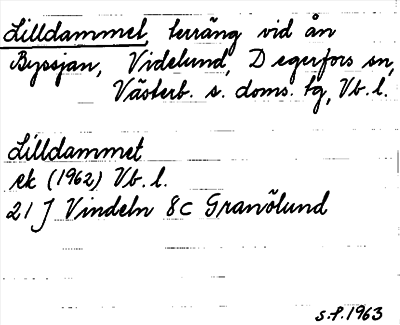 Lilldammet, terräng vid ån
Byssjan, Videlund, Degerfors sn,
Västerb. s. doms. tg, Vb. l.
Lilldammet
ek (1962) Vb. l.
21 J Vindeln 8c Granölund
s.f. 1963